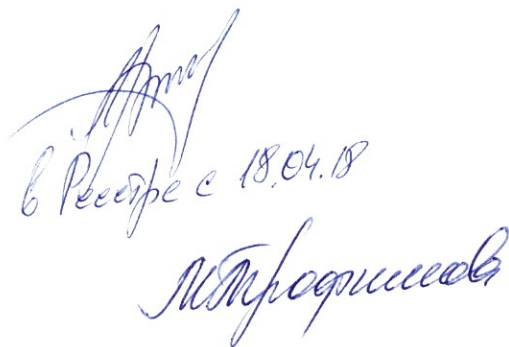 в Реестре с 18.04.18
МТрофимова